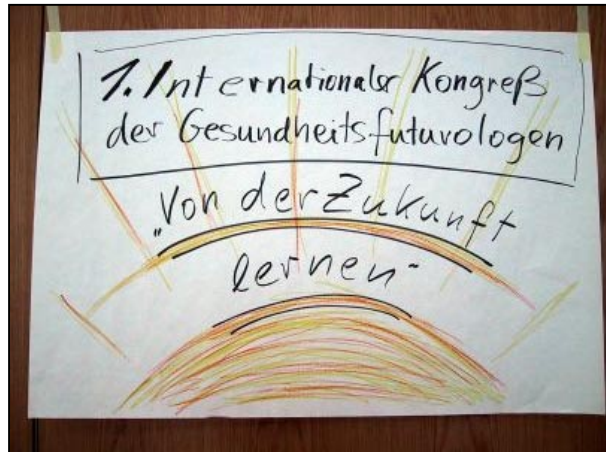 1. Internationaler Kongreß
der Gesundheitsfuturologen
„Von der Zukunft
lernen“